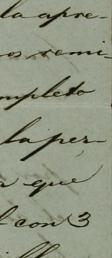 la apre
os remi-
mpleto
la per
que
con 3